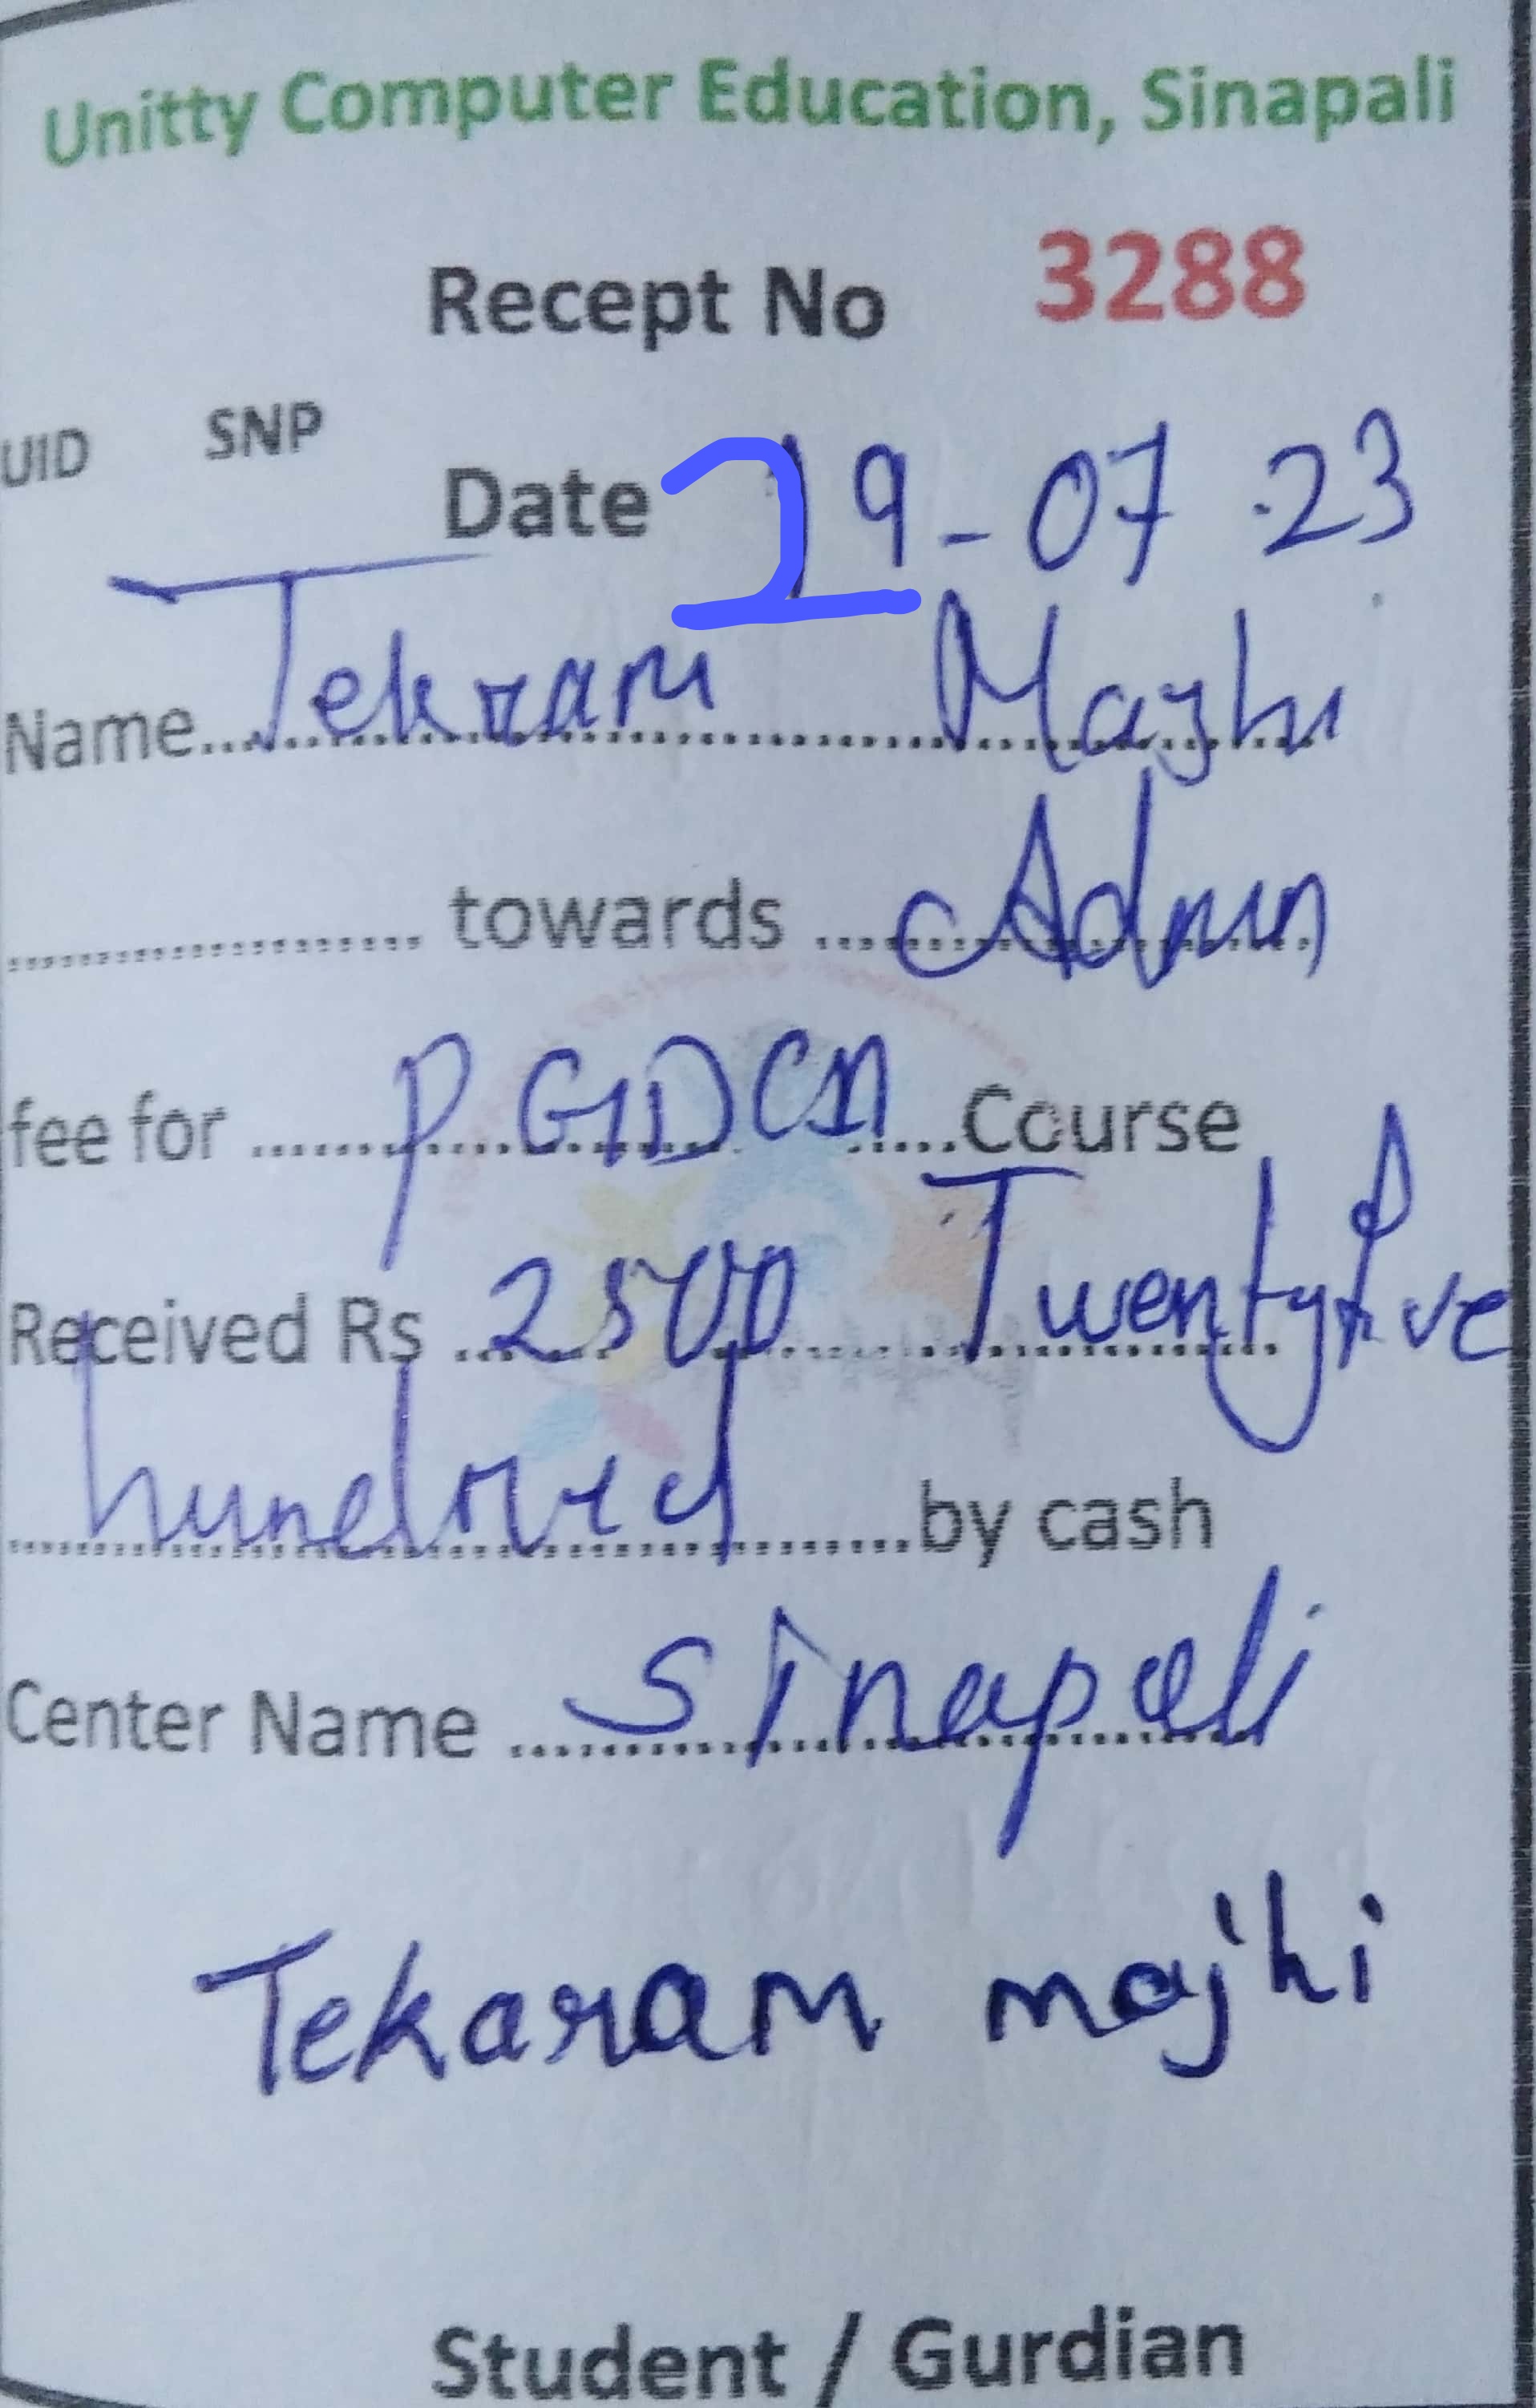 Unitty Computer Education, Sinapali
Recept No 3288
UID SNP
Date 29-07-23
Name Tekram Majhi
towards Admn
fee for PGDCA Course
Received Rs 2500 Twenty five
hundred by cash
Center Name Sinapali
Tekaram majhi
Student / Gurdian